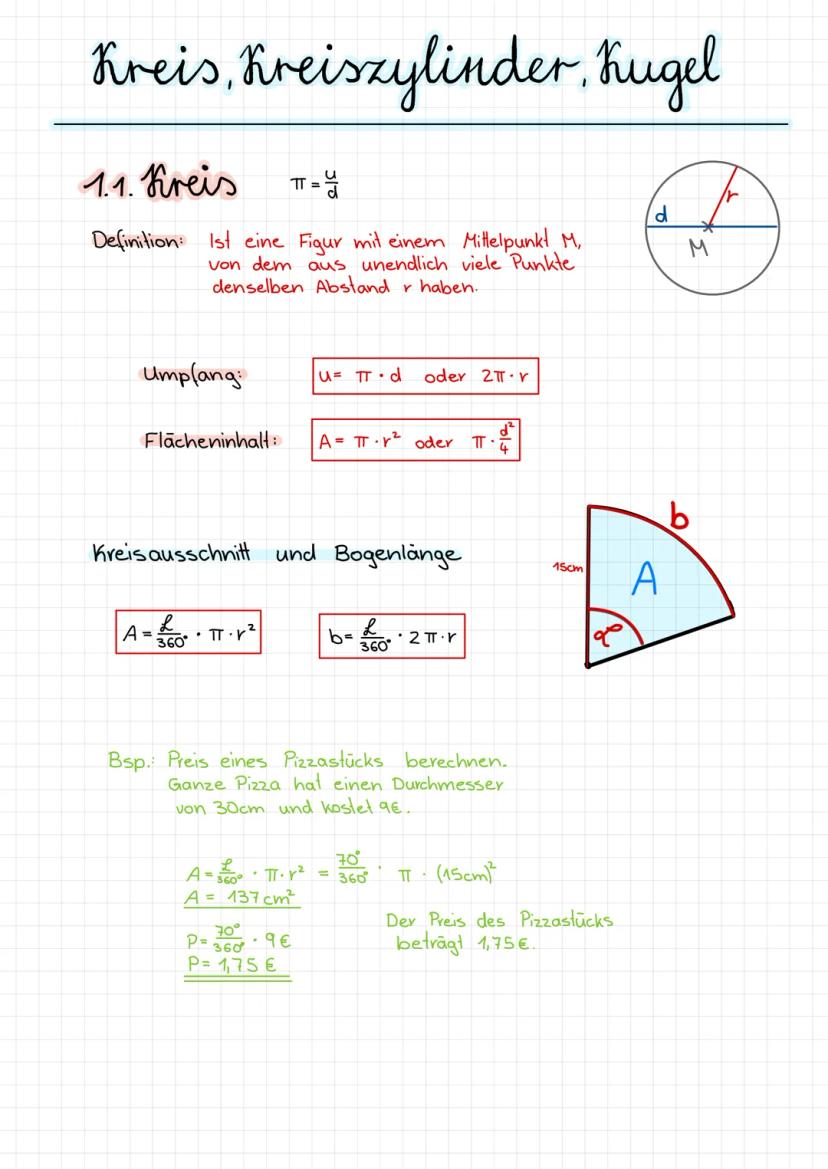 Kreis, Kreiszylinder, Kugel
1.1. Kreis π = u/d
Definition: Ist eine Figur mit einem Mittelpunkt M,
von dem aus unendlich viele Punkte
denselben Abstand r haben.
d r
M
Umpfang: u = π · d oder 2π · r
Flächeninhalt: A = π · r² oder π · d²/4
Kreisausschnitt und Bogenlänge
A = α/360° · π · r² b = α/360° · 2π · r
b
15cm
A
α°
Bsp.: Preis eines Pizzastücks berechnen.
Ganze Pizza hat einen Durchmesser
von 30cm und kostet 9€.
A = α/360° · π · r² = 70°/360° · π · (15cm)²
A = 137cm²
P = 70°/360° · 9€
P = 1,75€
Der Preis des Pizzastücks
beträgt 1,75€.